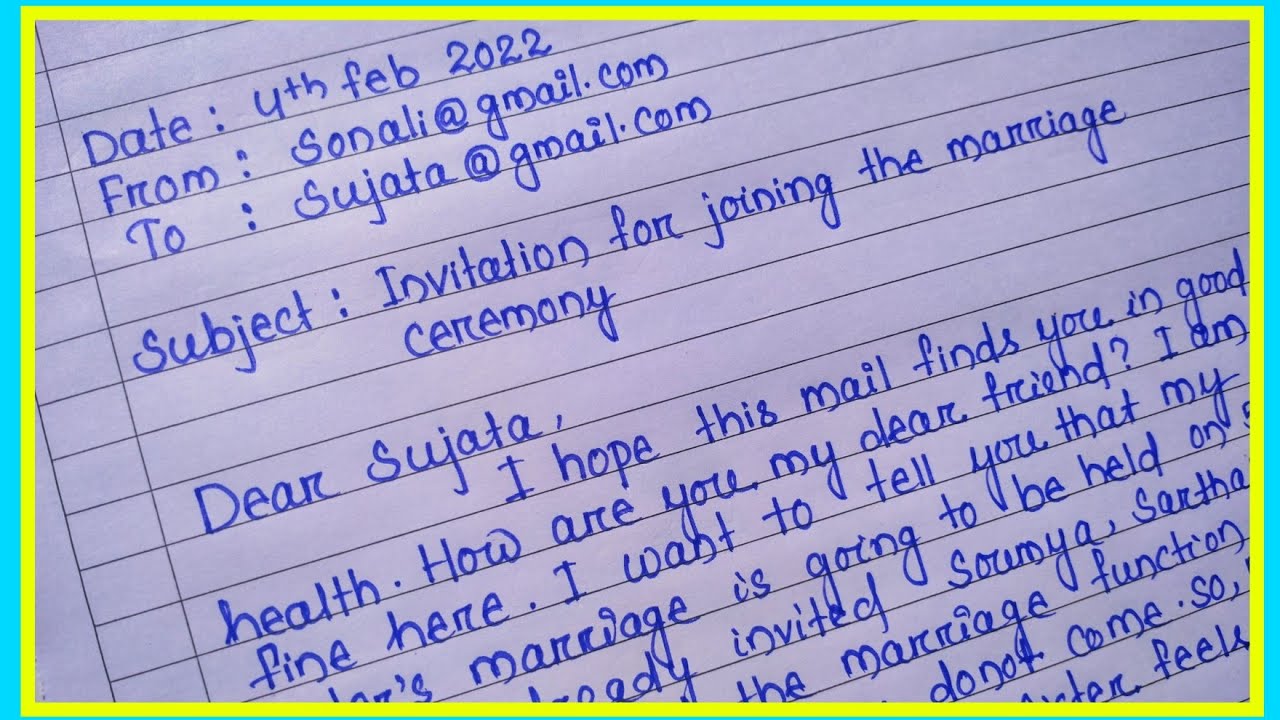 Date : 4th feb 2022
From : Sonali@gmail.com
To : Sujata@gmail.com
Subject : Invitation for joining the marriage
ceremony
Dear Sujata,
I hope this mail finds you in good
health. How are you my dear friend? I am
fine here. I want to tell you that my
marriage is going to be held on
invited Soumya,
the marriage function
donot come. so,